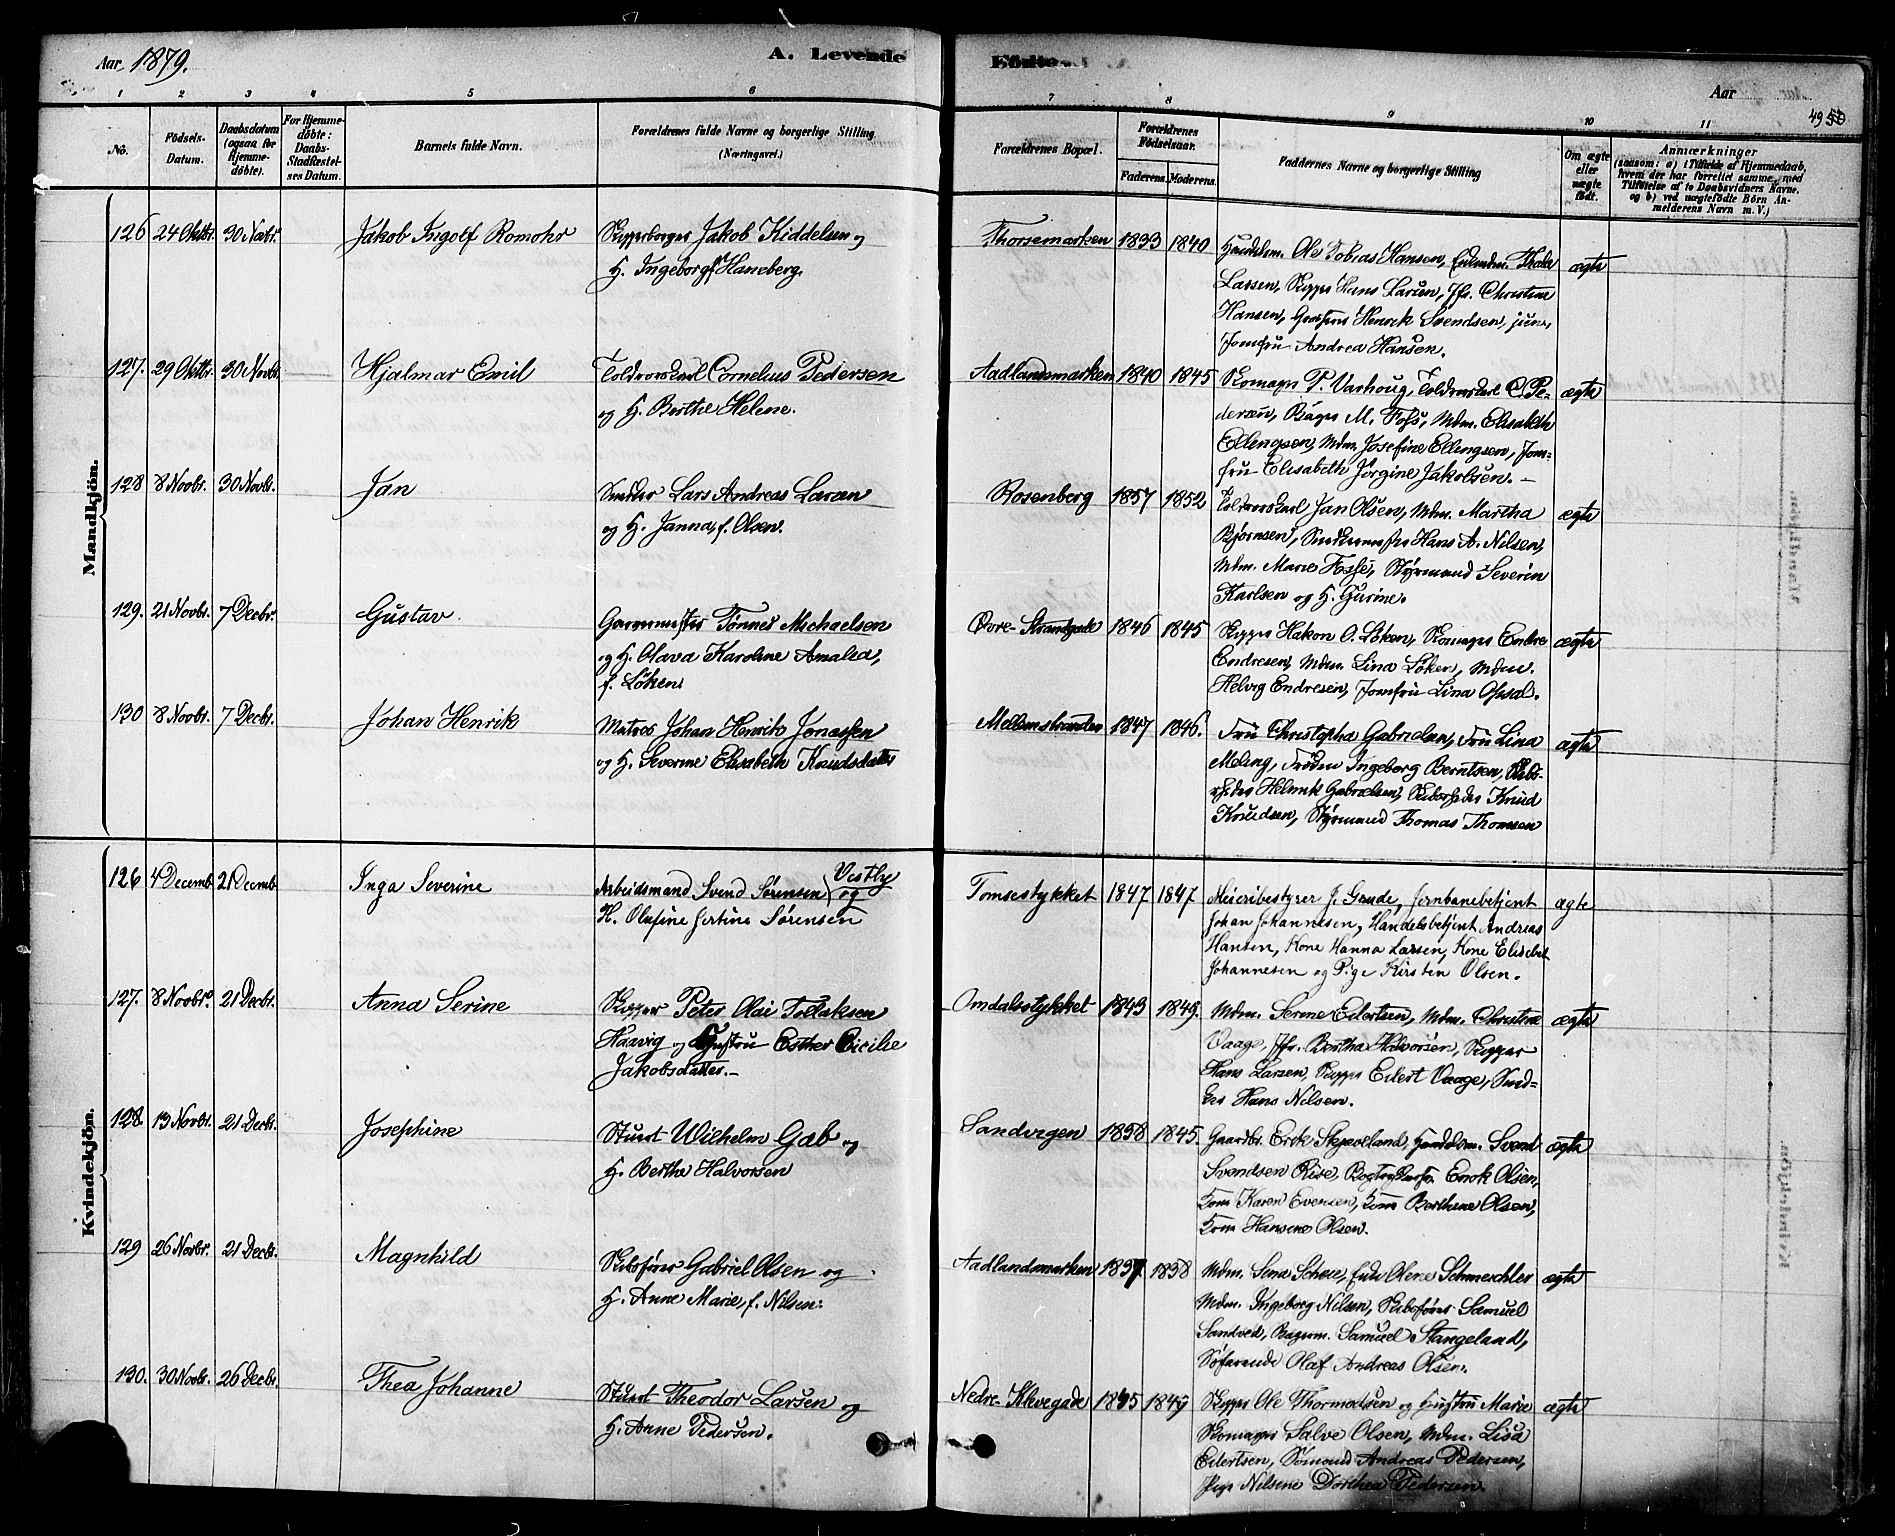 Aar 1879.
A. Levende
Födte
Aar
49 50
1 2 3 4 5 6 7 8 9 10 11
No.
Födsels-
Datum.
Daabsdatum
(ogsaa for
Hjemme-
döbte).
For Hjemme-
döbte:
Daabs-
Stadfæstel-
ses Datum.
Barnets fulde Navn.
Forældrenes fulde Navne og borgerlige Stilling
(Næringsvei.)
Forældrenes Bopæl.
Forældrenes
Födselsaar.
Faderens. Moderens.
Faddernes Navne og borgerlige Stilling
Om ægte
eller
uægte
födt.
Anmærkninger
(saasom: a) i Tilfælde af Hjemmedaab,
hvem der har forrettet samme, med
Tilföielse af to Daabsvidners Navne.
og b) ved uægtefödte Börn An-
melderens Navn m. V.)
Mandkjön.
126 24 Oktbr. 30 Novbr. Jakob Ingolf Romohr
Skipperborger Jakob Kiddelsen og
H. Ingeborg f. Haneberg.
Thorsemarken 1833 1840
Handelsm. Ole Tobias Hansen, Thala
Larsen, Skipper Hans Larsen, Jfr. Christine
Hansen, Henrik Svendsen, jun.,
Jomfru Andrea Hansen.
ægte
127. 29 Oktbr. 30 Novbr. Hjalmar Emil
Toldrorskarl Cornelius Pedersen
og H. Berthe Helene.
Aadlandsmarken 1840 1845
Skomager P. Varhoug, Toldrorskarl C. Pe-
dersen, Bager M. Foss, Mdm. Elisabeth
Ellingsen, Mdm. Josefine Ellingsen, Jom-
fru Elisabeth Jörgine Jakobsen. –
ægte
128 8 Novbr. 30 Novbr. Jan
Snedker Lars Andreas Larsen
og H. Janna, f. Olsen.
Rosenberg 1857 1852
Toldrorskarl Jan Olsen, Mdm. Martha
Björnsen, Snedkermester Hans A. Nilsen,
Mdm. Marie Fosse, Styrmand Severin
Karlsen og H. Gurine.
ægte
129. 21 Novbr. 7 Decbr. Gustav
Garvermester Tönnes Michaelsen
og H. Olava Karoline Amalia,
f. Löken
Övre-Strandgade 1846 1845
Skipper Hakon O. Löken, Skomager Endre
Endresen, Mdm. Lina Löken, Mdm.
Helvig Endresen, Jomfru Lina Opsal.
ægte
130 8 Novbr. 7 Decbr. Johan Henrik
Matros Johan Henrik Jonassen
og H. Severine Elisabeth Knudsdatter
Mellemstranden 1847 1846.
Fru Christopha Gabrielsen, Fru Lina
Meling, Fröken Ingeborg Berntsen, Skibs-
reder Helmik Gabrielsen, Skibsreder Knud
Knudsen, Styrmand Thomas Thomsen
ægte
Kvindekjön.
126 4 Decemb. 21 Decemb. Inga Severine
Arbeidsmand Svend Sørensen Vestby
og
H. Olufine Jertine Sørensen
Tomsestykket 1847 1847
Meieribestyrer J. Gaude, Jernbanebetjent
Johan Johannesen, Handelsbetjent Andreas
Hansen, Kone Hanna Larsen, Kone Elisebet
Johannesen og Pige Kirsten Olsen.
ægte
127. 8 Novbr. 21 Decbr. Anna Serine
Skipper Peter Olai Tollaksen
Haavig og Hustru Esther Cicilie
Jakobsdatter. –
Omdalsstykket 1843 1849.
Mdm. Serine Eilertsen, Mdm. Christine
Vaage, Jfr. Bertha Halvorsen, Skipper
Hans Larsen, Skipper Eilert Vaage, Sned-
ker Hans Nilsen.
ægte
128. 13 Novbr. 21 Decbr. Josephine
Stuert Wilhelm Gab og
H. Berthe Halvorsen
Sandvigen 1838 1845.
Gaardbr. Erik Skjæveland, Handelsm. Svend
Svendsen Rise, Bogtrykkersv. Enok Olsen,
Kone Karen Evensen, Kone Berthene Olsen,
Kone Hansine Olsen.
ægte
129 26 Novbr. 21 Decbr. Magnhild
Skibsförer Gabriel Olsen og
H. Anne Marie, f. Nilsen.
Aadlandsmarken 1837. 1838
Mdm. Sina Scheie, Enke Olene Schmeichler
Mdm. Ingeborg Nilsen, Skibsförer Samuel
Sandved, Bagerm. Samuel Stangeland,
Söfarende Olaf Andreas Olsen.
ægte
130. 30 Novbr. 26 Decbr. Thea Johanne
Stuert Theodor Larsen og
H. Anne Pedersen.
Nedre-Klevegade 1845 1849
Skipper Ole Thormodsen og Hustru Marie
Skomager Salve Olsen, Mdm. Lisa
Eilertsen, Sömand Andreas Pedersen,
Pige Nilsine Dorthea Pedersen.
ægte